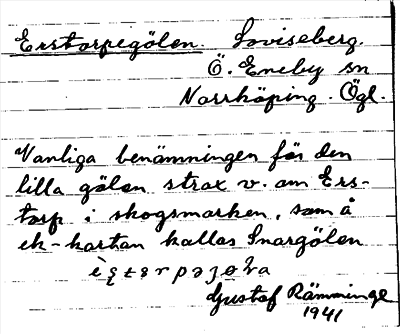 Erstorpegölen. Loviseberg.
Ö. Eneby sn
Norrköping. Ögl.
Vanliga benämningen för den
lilla gölen strax v. om Ers-
torp i skogsmarken, som å
ek-kartan kallas Snargölen
Gustaf Rämminge
1941